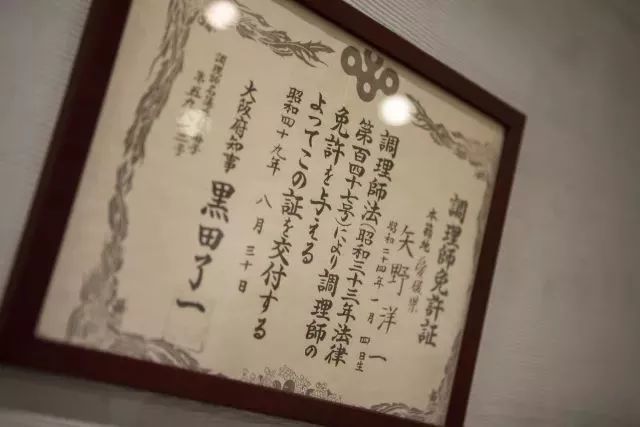 調理師免許証
本籍地 愛媛県
矢野洋一
昭和二十四年一月四日生
調理師法(昭和三十三年法律
第百四十七号)により調理師の
免許を与える
よってこの証を交付する
昭和四十九年八月三十日
大阪府知事 黒田了一
調理師名簿登録番号